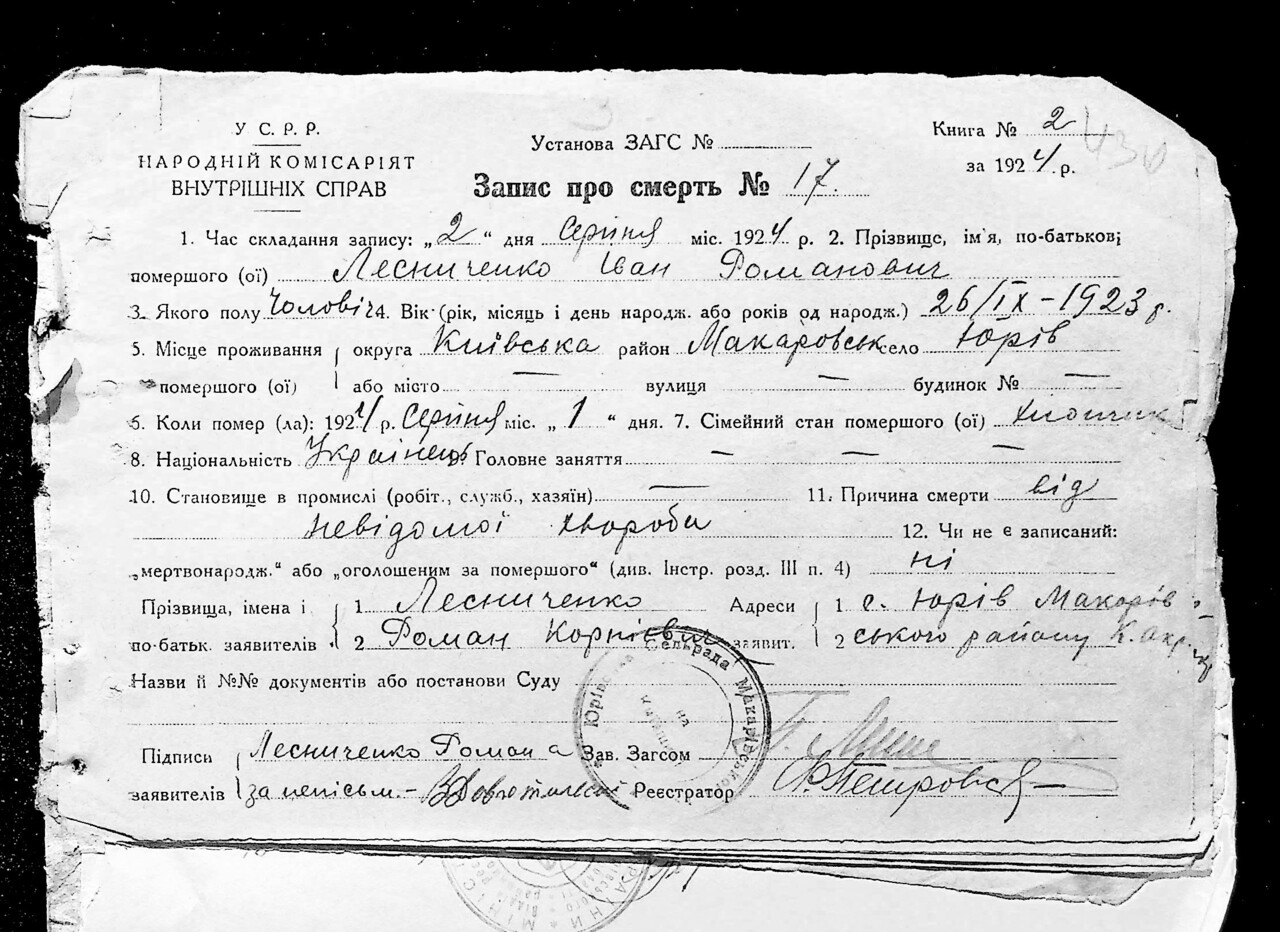 У С. Р. Р.
НАРОДНІЙ КОМІСАРІЯТ
ВНУТРІШНІХ СПРАВ
Установа ЗАГС №
Запис про смерть № 17.
Книга № 2
430
за 1924 р.
1. Час складання запису: „2“ дня Серпня міс. 1924 р. 2. Прізвище, ім'я, по-батькові
помершого (ої) Лесниченко Іван Романович
3. Якого полу Чоловіч 4. Вік (рік, місяць і день народж. або років од народж.) 26/IX-1923 г.
5. Місце проживання округа Київська район Макаровськ село Юрів
помершого (ої) або місто — вулиця — будинок № —
6. Коли помер (ла): 1924 р. Серпня міс. „1“ дня. 7. Сімейний стан помершого (ої) хлопчик
8. Національність Українець 9. Головне заняття — — —
10. Становище в промислі (робіт., служб., хазяїн) — 11. Причина смерти від
невідомої хвороби 12. Чи не є записаний:
„мертвонародж.“ або „оголошеним за помершого“ (див. Інстр. розд. III п. 4) ні
Прізвища, імена і 1 Лесниченко Адреси 1 с. Юрів Макарів-
по-батьк. заявителів 2 Роман Корнієвич заявит. 2 ського району К. окр.
Назви й №№ документів або постанови Суду
Юрівська Сельрада Макарівського
на Київщині
Підписи Лесниченко Романа Зав. Загсом
заявителів за неписьм. - Реєстратор Петровск